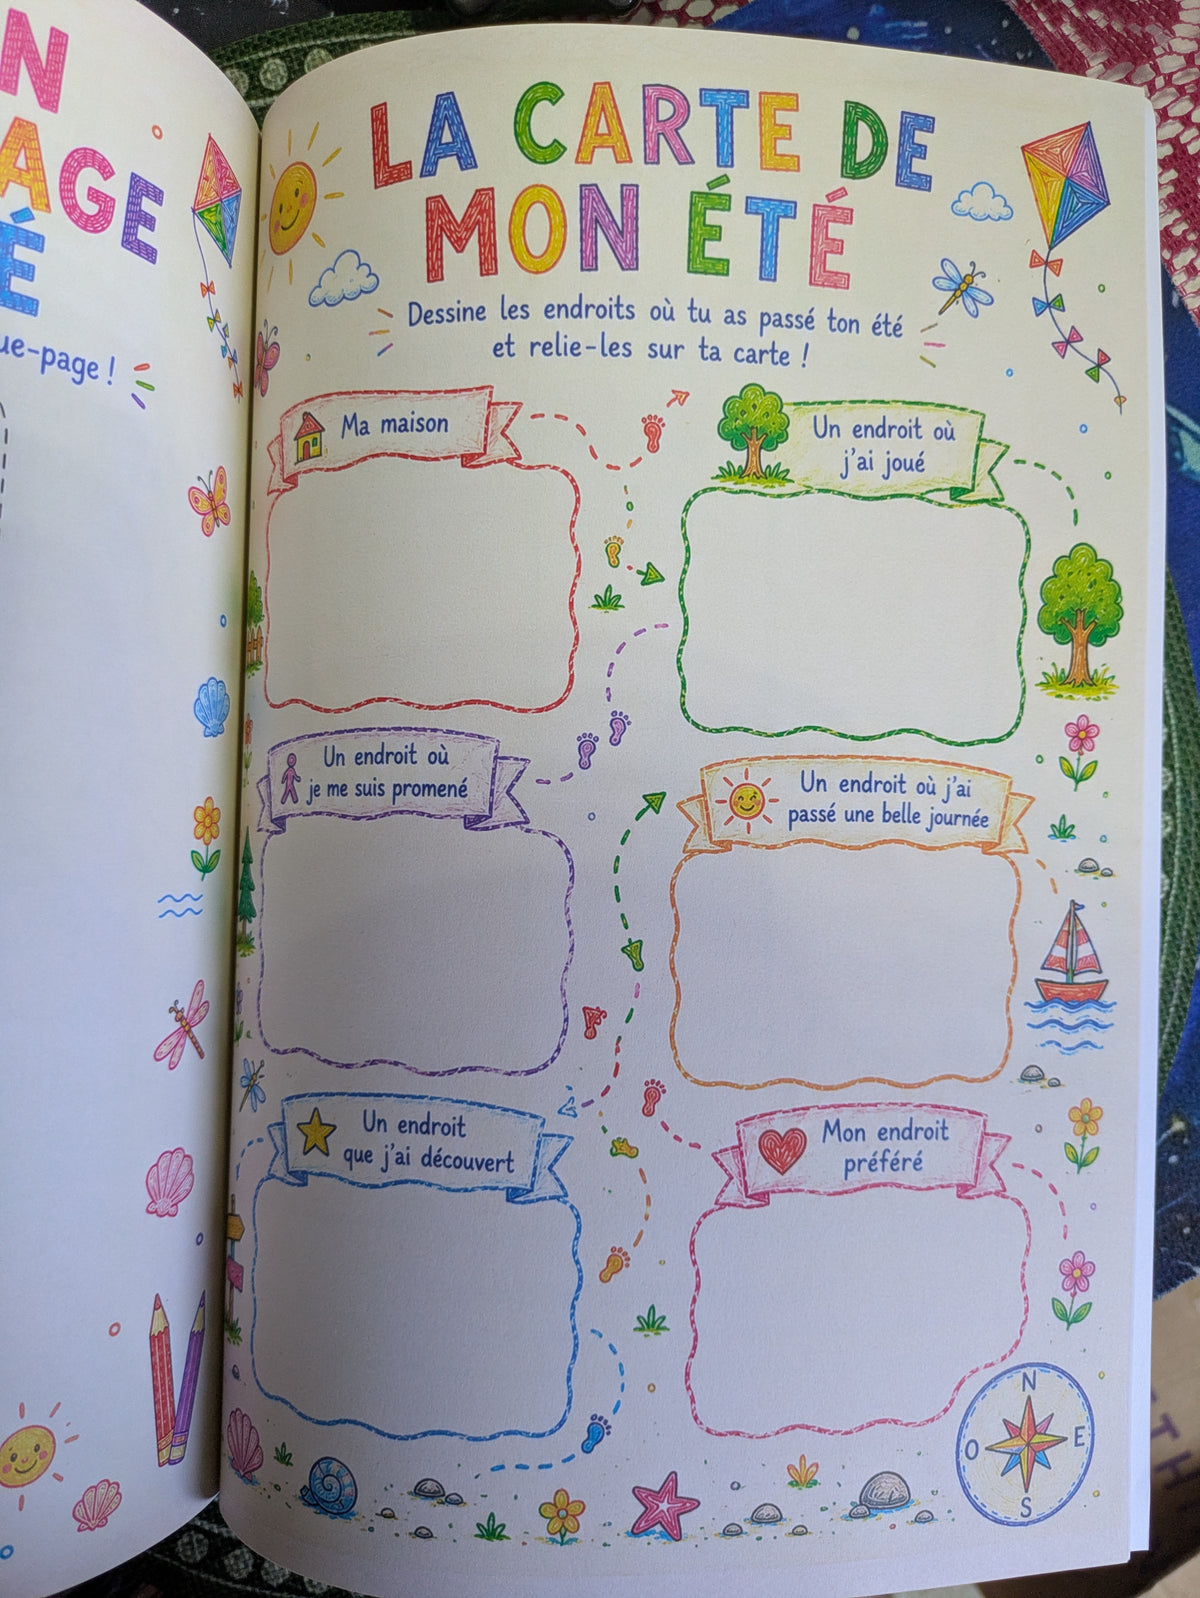 N
AGE
É
ue-page !
LA CARTE DE
MON ÉTÉ
Dessine les endroits où tu as passé ton été
et relie-les sur ta carte !
Ma maison
Un endroit où
j'ai joué
Un endroit où
je me suis promené
Un endroit où j'ai
passé une belle journée
Un endroit
que j'ai découvert
Mon endroit
préféré
N
O
E
S